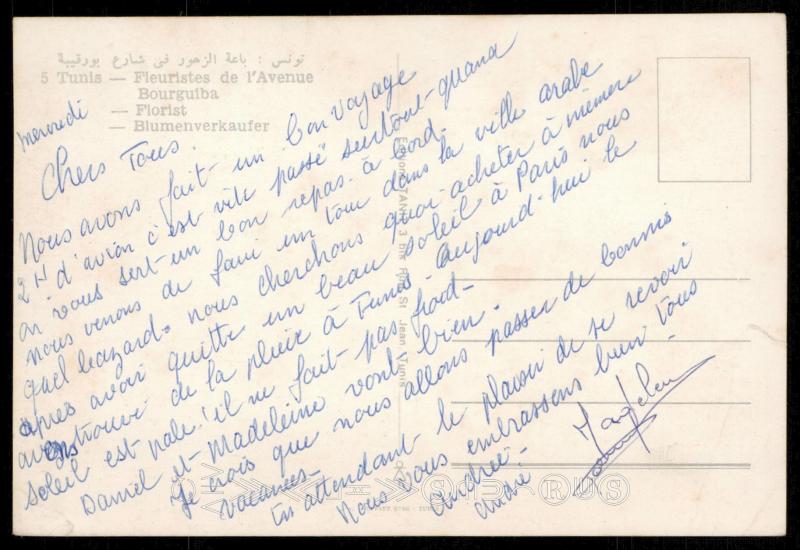 تونس : باعة الزهور في شارع بورقيبة
5 Tunis — Fleuristes de l'Avenue
Bourguiba
— Florist
— Blumenverkaufer
mercredi
Chers Tous.
Nous avons fait un bon voyage
2H d'avion c'est vite passé surtout quand
on vous sert un bon repas à bord.
nous venons de faire un tour dans la ville arabe
quel hazard. nous cherchons quoi acheter à mémère
après avoir quitté un beau soleil à Paris nous
avons trouvé de la pluie à Tunis. Aujourd-hui le
soleil est pale! il ne fait pas froid.
Daniel et Madeleine vont bien.
Je crois que nous allons passer de bonnes
vacances.
En attendant le plaisir de se revoir
Nous vous embrassons bien tous
Andrée.
André
Madeleine
St Jean Tunis